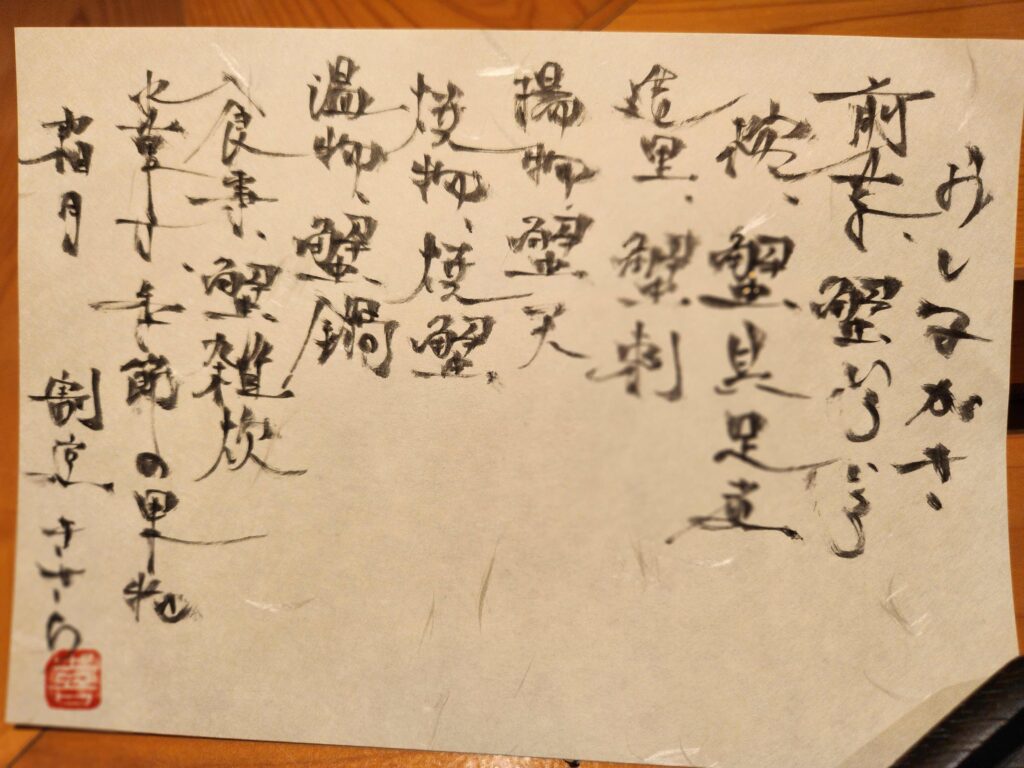 おしながき
前菜、蟹いろいろ
椀、蟹具足煮
造里、蟹刺
揚物、蟹天
焼物、焼蟹
温物、蟹鍋
食事、蟹雑炊
水菓子 季節の果物
霜月 割烹